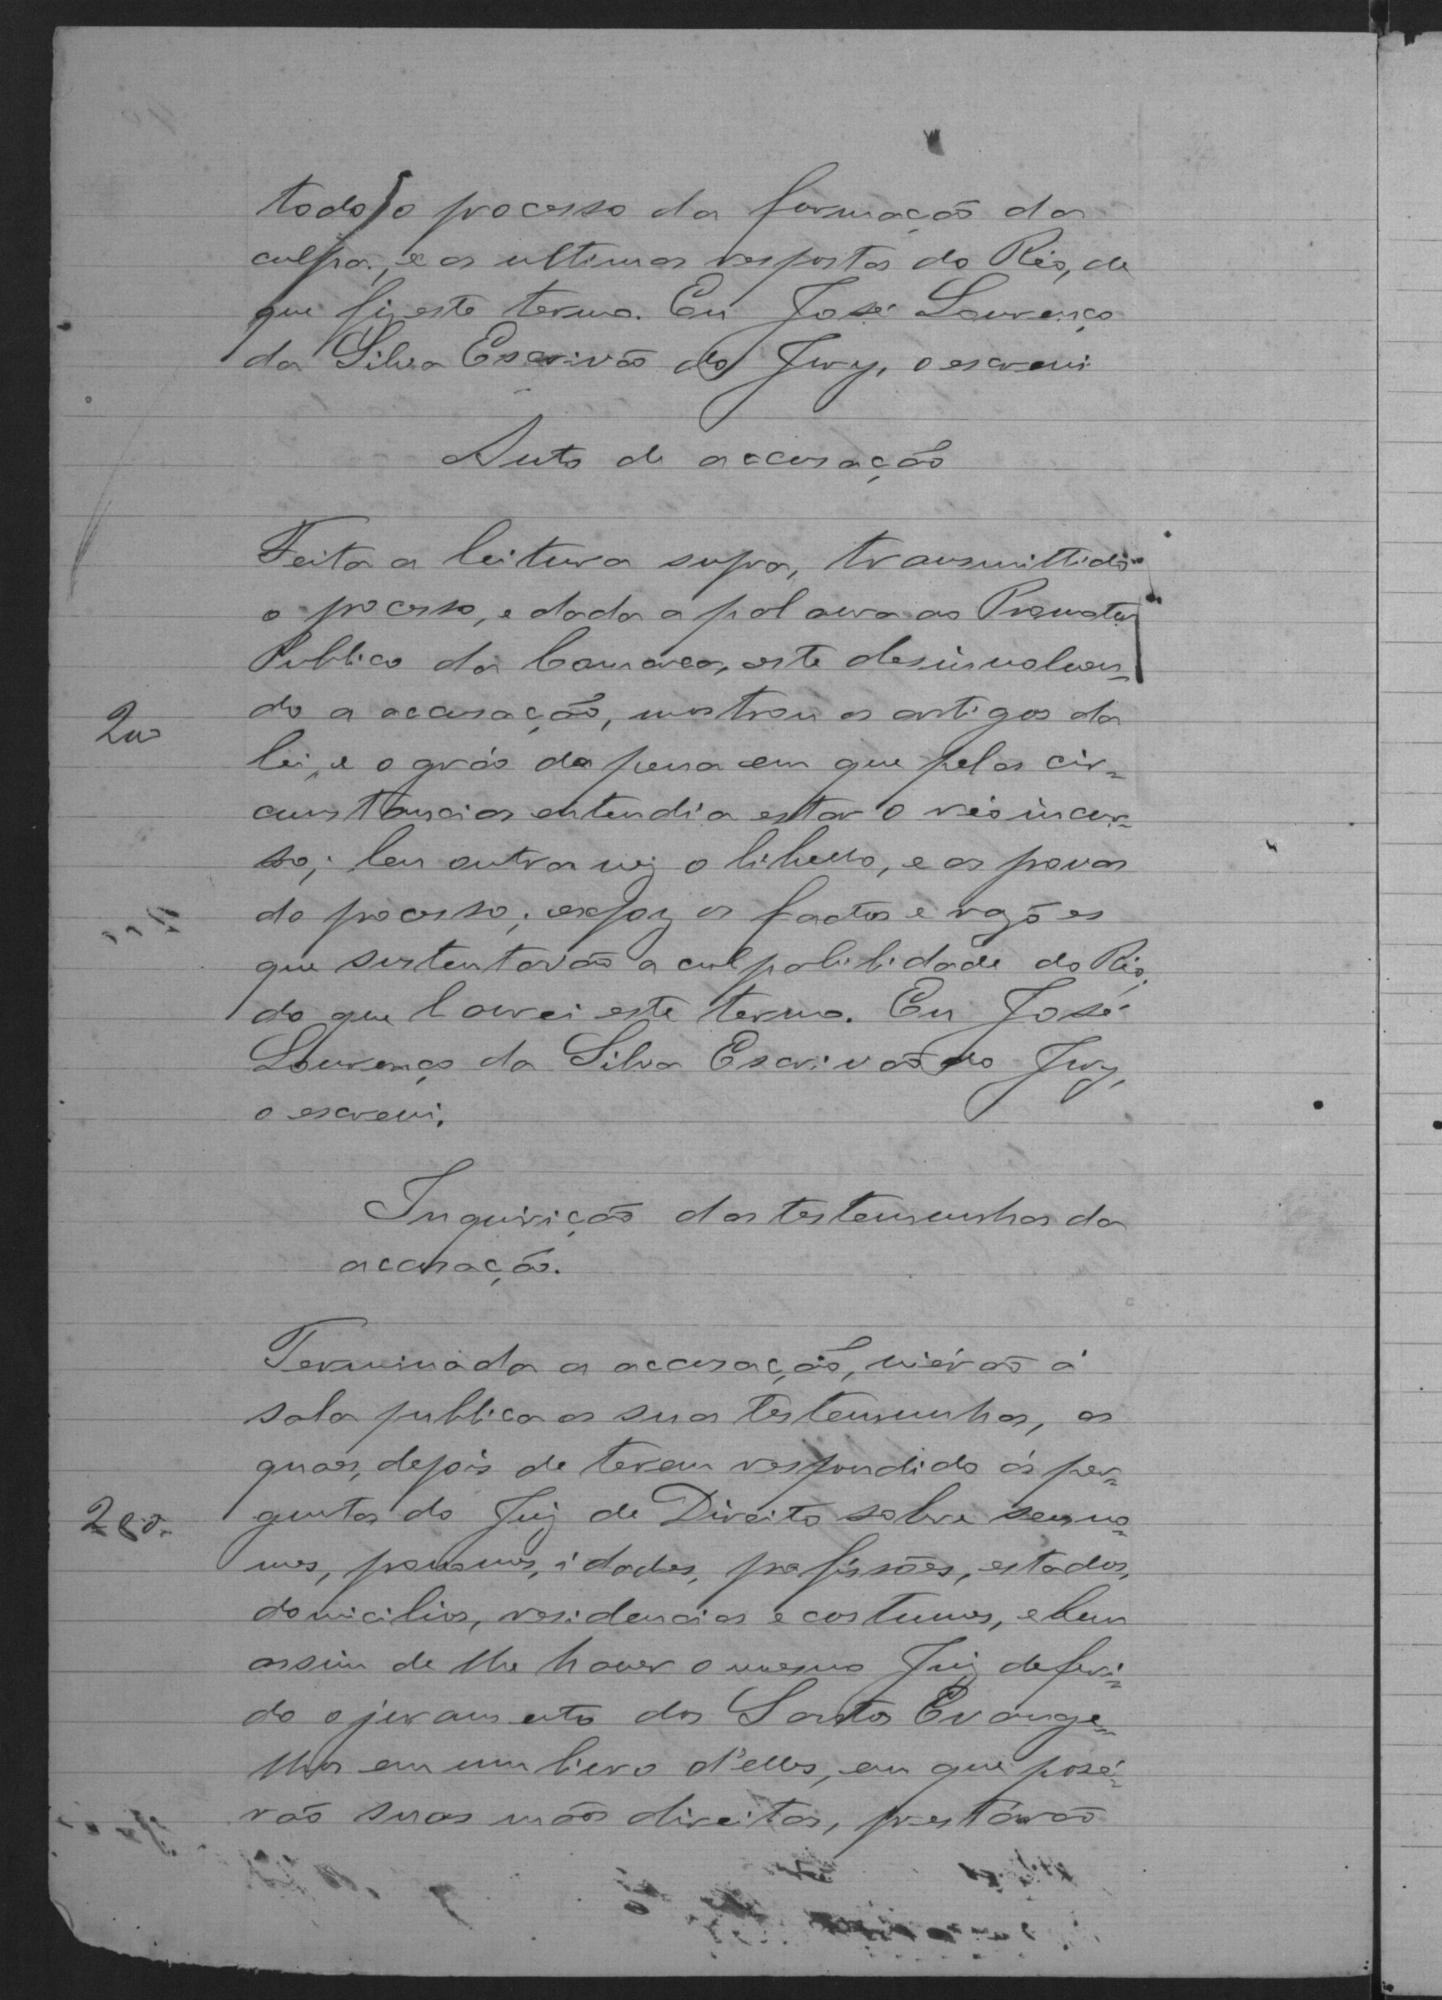 todo o processo da formação da
culpa, e as ultimas respostas do Réo, de
que fiz este termo. Eu José Lourenço
da Silva Escrivão do Jury, o escrevi
Auto de accusação
Feita a leitura supra, transmittido
o processo, e dada a palavra ao Promotor
Publico da Comarca, este desinvolven-
do a accusação, mostrou os artigos da
lei, e o gráo da pena em que pelas cir-
cunstancias entendia estar o réo incur-
so; leu outra vez o libello, e as provas
do processo; expoz os factos e razões
que sustentavão a culpabilidade do Réo,
do que lavrei este termo. Eu José
Lourenço da Silva Escrivão do Jury,
o escrevi.
Inquirição das testemunhas da
accusação.
Terminada a accusação, viérão á
sala publica as suas testemunhas, as
quaes, depois de terem respondido ás per-
guntas do Juiz de Direito sobre seus no-
mes, pronomes, idades, profissões, estados,
domicilios, residencias e costumes, e bem
assim de lhe haver o mesmo Juiz deferi-
do o juramento dos Santos Evange-
lhos em um livro d'elles, em que posé-
rão suas mãos direitas, prestárão